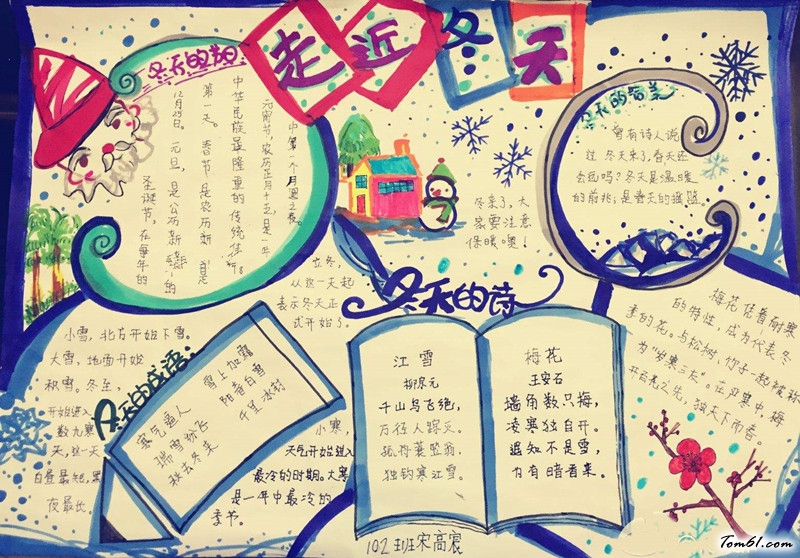 走近冬天
冬天的节日
圣诞节,在每年的
12月25日。元旦,是公历新
第一天。春节是农历新
中华民族最隆重的传统佳节。
元宵节,农历正月十五,是一年
中第一个月圆之夜。
冬来了,大
家要注意
保暖噢!
冬天的
曾有诗人说
过冬天来了,春天还
会远吗?冬天是温暖
的前兆;是春天的
立冬,
从这一天起
表示冬天正
式开始了。
冬天的诗
小雪,北方开始下雪。
大雪,地面开始
积雪。冬至,
开始进入
数九寒
天,这一天
白昼最短,黑
夜最长。
冬天的成语:
雪上加霜
阳春白雪
千里冰封
寒气逼人
瑞雪纷飞
秋去冬来
小寒,
天气开始进入
最冷的时期。大寒
是一年中最冷的
季节。
江雪
柳宗元
千山鸟飞绝,
万径人踪灭。
孤舟蓑笠翁,
独钓寒江雪。
梅花
王安石
墙角数只梅,
凌寒独自开。
遥知不是雪,
为有暗香来。
梅花凭着耐寒
的特性,成为代表冬
季的花。与松树、竹子一起被称
为“岁寒三友”。在严寒中,梅
开百花之先,独天下而春。
102班宋高宸
Tom61.com